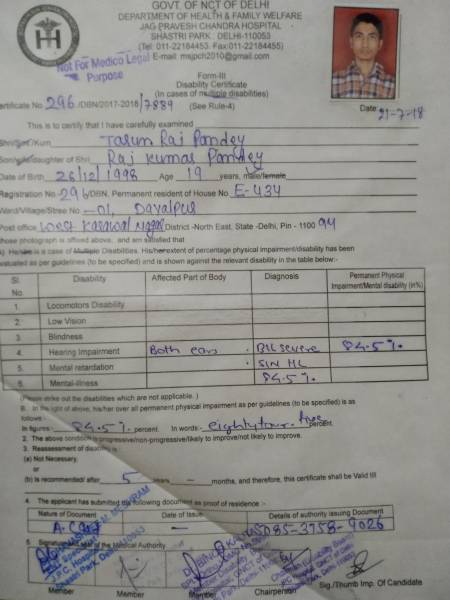 GOVT. OF NCT OF DELHI
DEPARTMENT OF HEALTH & FAMILY WELFARE
JAG PRAVESH CHANDRA HOSPITAL
SHASTRI PARK DELHI-110053
(Tel: 011-22184453. Fax:011-22184455)
E-mail: msjpch2010@gmail.com
Not For Medico Legal
Purpose
Form-III
Disability Certificate
(In cases of multiple disabilities)
Certificate No. 296 /DBN/2017-2018/7889 (See Rule-4) Date: 21-7-18
This is to certify that I have carefully examined
Shri/Smt/Kum Tarun Raj Pandey
Son/wife/daughter of Shri Raj Kumar Pandey
Date of Birth 26/12/1998 Age 19 years, male/female
Registration No. 296/DBN, Permanent resident of House No. E-434
Ward/Village/Stree No -01, Dayalpur
Post office West Karawal Nagar District -North East, State -Delhi, Pin - 1100 94
whose photograph is affixed above, and am satisfied that
is a case of Multiple Disabilities. His/her extent of percentage physical impairment/disability has been
evaluated as per guidelines (to be specified) and is shown against the relevant disability in the table below:-
Sl. No. Disability Affected Part of Body Diagnosis Permanent Physical Impairment/Mental disability (in%)
1. Locomotors Disability
2. Low Vision
3. Blindness
4. Hearing Impairment Both ears B/L severe 84.5%
5. Mental retardation SN HL
6. Mental-illness 84.5%
(Please strike out the disabilities which are not applicable. )
B. In the light of above, his/her over all permanent physical impairment as per guidelines (to be specified) is as
follows:-
In figures:- 84.5% percent. In words:- eightyfour. five percent.
2. The above condition is progressive/non-progressive/likely to improve/not likely to improve.
3. Reassessment of disability is:
(a) Not Necessary.
or
(b) is recommended/ after 5 years - months, and therefore, this certificate shall be Valid till
4. The applicant has submitted the following document as proof of residence :-
Nature of Document Date of Issue Details of authority issuing Document
A. Card - 8085-3758-9026
5. Signature and seal of the Medical Authority
Member Member Member Chairperson Sig./Thumb Imp. Of Candidate